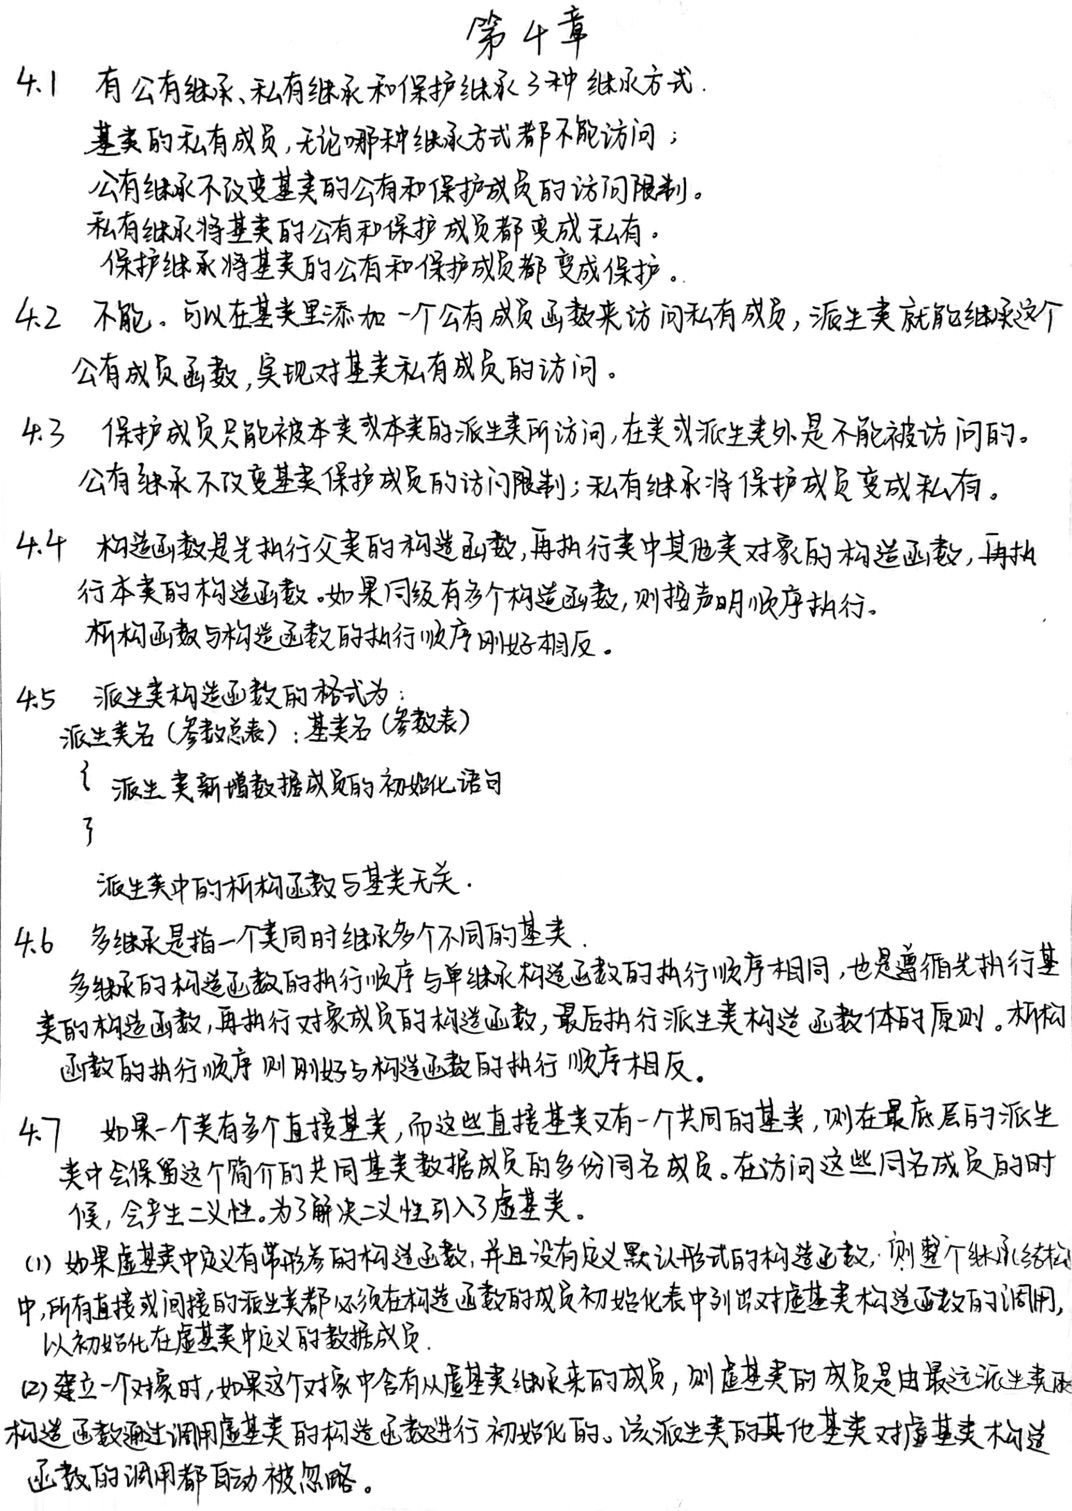 第4章
4.1 有公有继承、私有继承和保护继承3种继承方式.
基类的私有成员,无论哪种继承方式都不能访问;
公有继承不改变基类的公有和保护成员的访问限制。
私有继承将基类的公有和保护成员都变成私有。
保护继承将基类的公有和保护成员都变成保护。
4.2 不能。可以在基类里添加一个公有成员函数来访问私有成员,派生类就能继承这个
公有成员函数,实现对基类私有成员的访问。
4.3 保护成员只能被本类或本类的派生类所访问,在类或派生类外是不能被访问的。
公有继承不改变基类保护成员的访问限制;私有继承将保护成员变成私有。
4.4 构造函数是先执行父类的构造函数,再执行类中其他类对象的构造函数,再执
行本类的构造函数。如果同级有多个构造函数,则按声明顺序执行。
析构函数与构造函数的执行顺序刚好相反。
4.5 派生类构造函数的格式为:
派生类名(参数总表):基类名(参数表)
{ 派生类新增数据成员的初始化语句
}
派生类中的析构函数与基类无关.
4.6 多继承是指一个类同时继承多个不同的基类.
多继承的构造函数的执行顺序与单继承构造函数的执行顺序相同,也是遵循先执行基
类的构造函数,再执行对象成员的构造函数,最后执行派生类构造函数体的原则。析构
函数的执行顺序则刚好与构造函数的执行顺序相反。
4.7 如果一个类有多个直接基类,而这些直接基类又有一个共同的基类,则在最底层的派生
类中会保留这个简介的共同基类数据成员的多份同名成员。在访问这些同名成员的时
候,会产生二义性。为了解决二义性引入了虚基类。
(1) 如果虚基类中定义有带形参的构造函数,并且没有定义默认形式的构造函数,则整个继承结构
中,所有直接或间接的派生类都必须在构造函数的成员初始化表中列出对虚基类构造函数的调用,
以初始化在虚基类中定义的数据成员.
(2) 建立一个对象时,如果这个对象中含有从虚基类继承来的成员,则虚基类的成员是由最远派生类的
构造函数通过调用虚基类的构造函数进行初始化的。该派生类的其他基类对虚基类构造
函数的调用都自动被忽略。